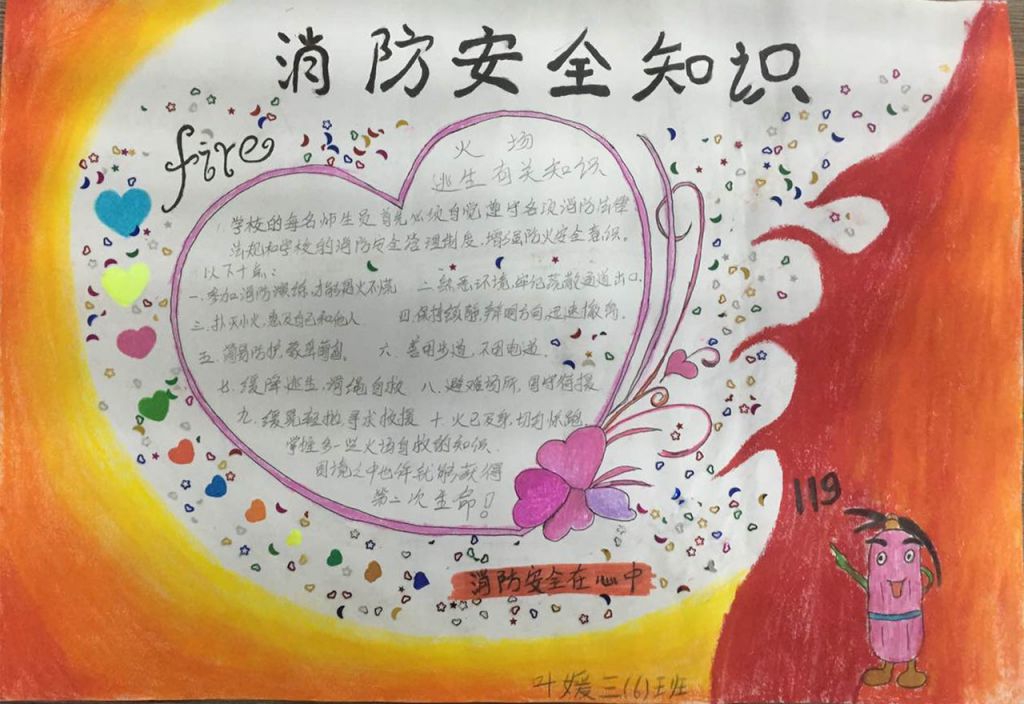 消防安全知识
fire
火场
逃生有关知识
学校的每名师生员首先必须自觉遵守各项消防法律、
法规和学校的消防安全管理制度,增强防火安全意识。
以下十点:
一.参加消防演练,才能遇火不慌 二.熟悉环境,牢记疏散通道出口.
三.扑灭小火,惠及自己和他人 四.保持镇静,辩明方向,迅速撤离.
五.简易防护,蒙鼻匍匐. 六.善用步道,不困电道.
七.缓降逃生,滑绳自救 八.避难场所,固守待援
九.缓晃轻抛,寻求救援 十.火已及身,切勿惊跑.
掌握多一些火场自救的知识.
困境之中也许就能够获得
第二次生命!
119
消防安全在心中
叶媛三(6)班